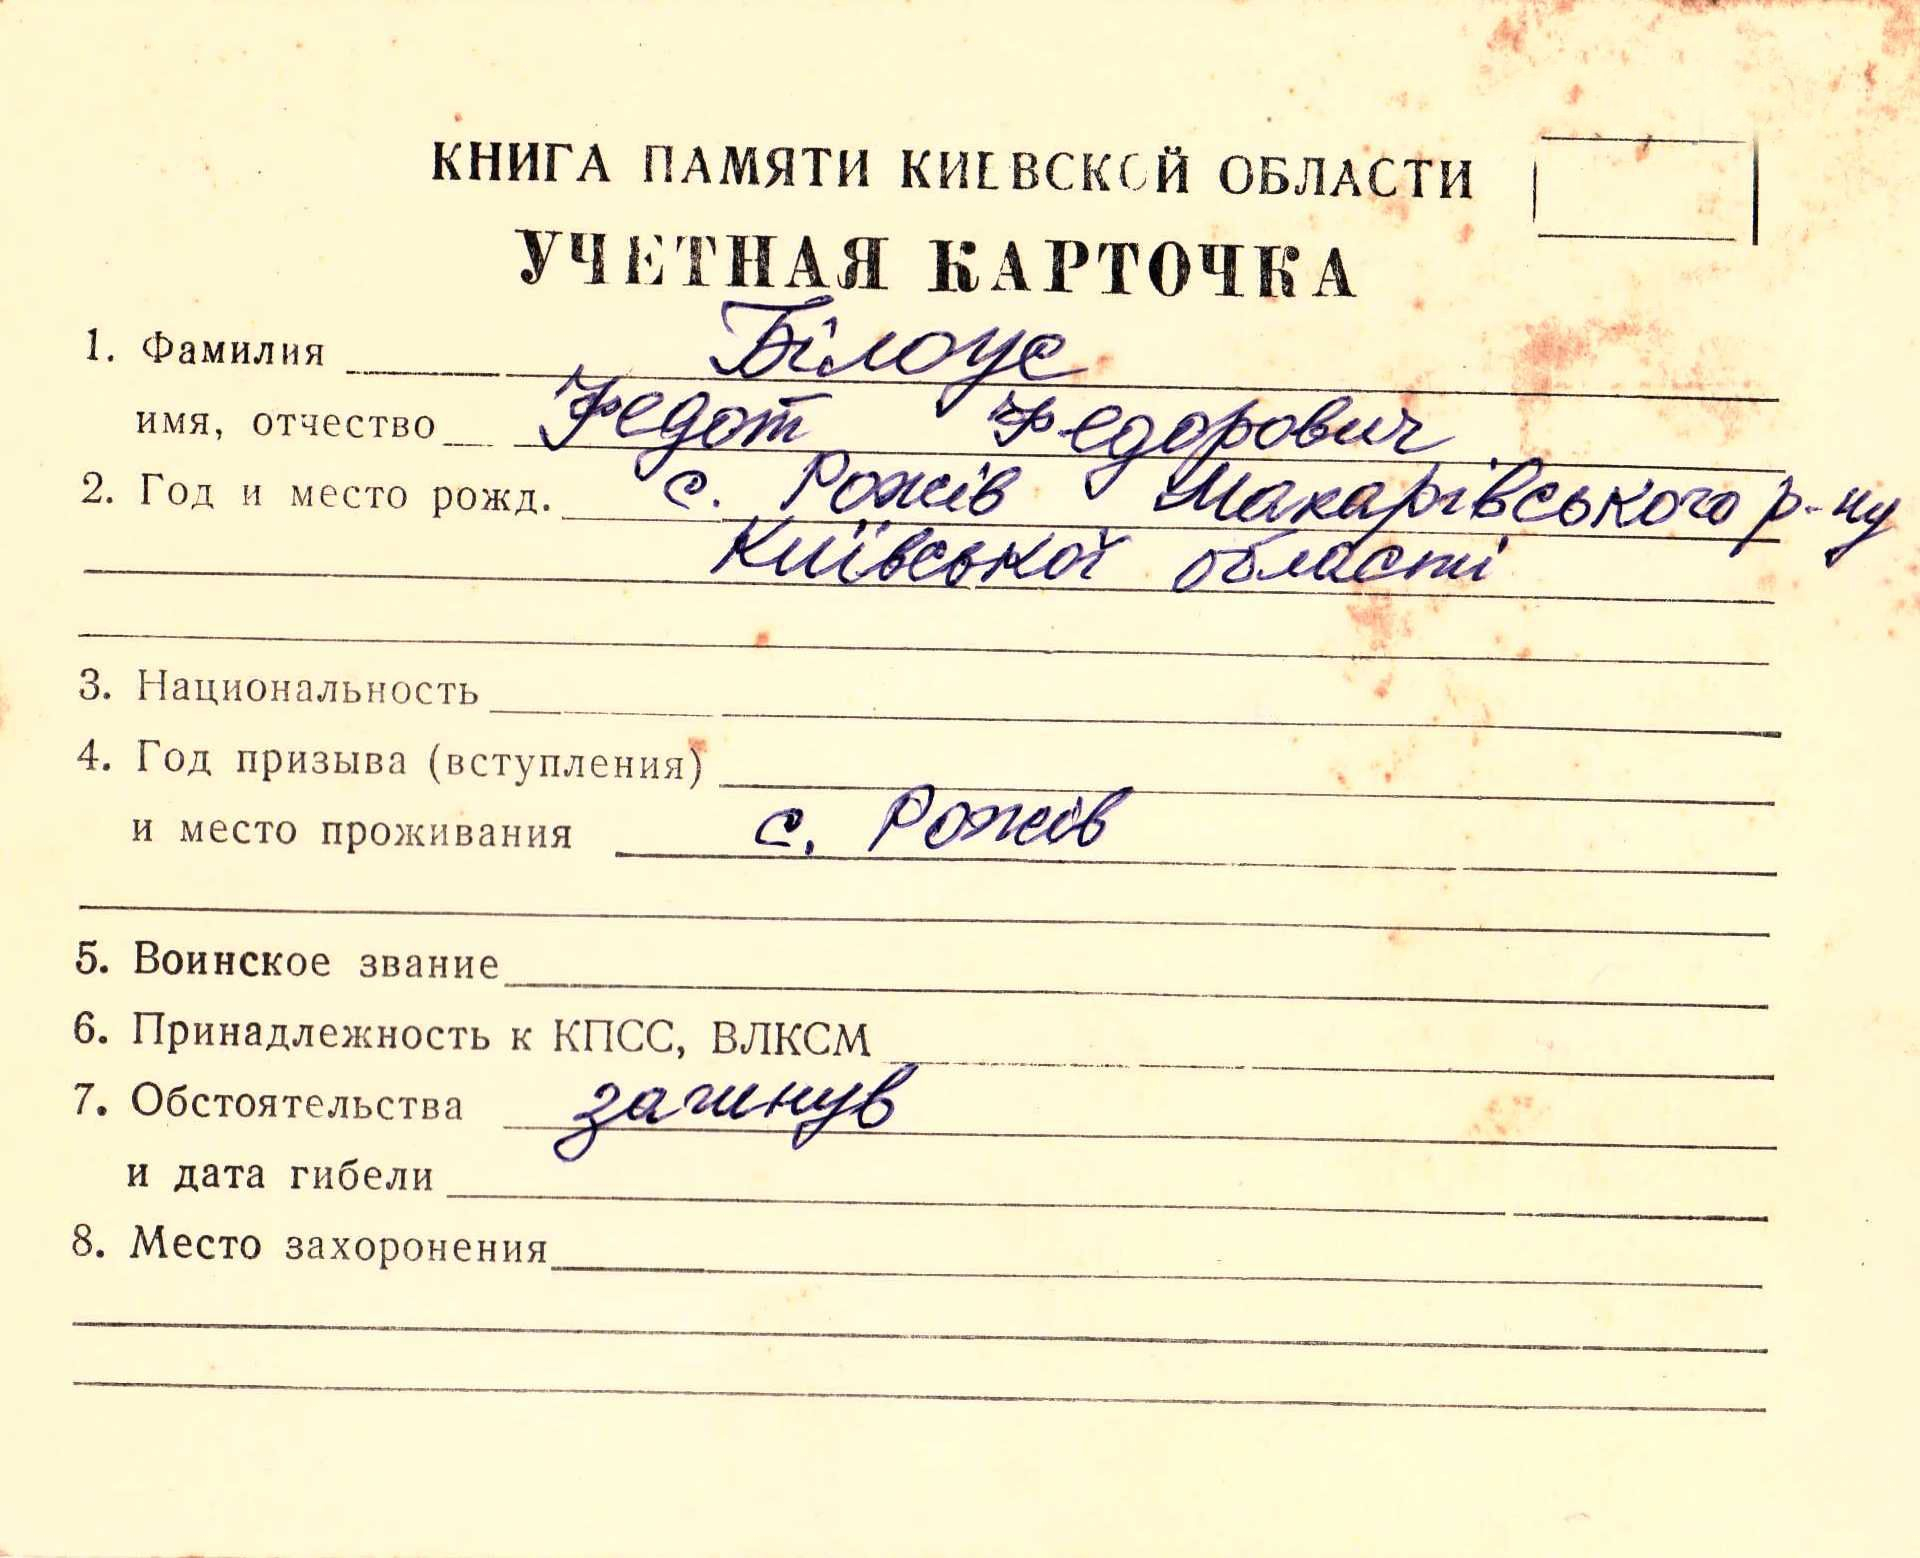 КНИГА ПАМЯТИ КИЕВСКОЙ ОБЛАСТИ
УЧЕТНАЯ КАРТОЧКА
1. Фамилия Білоус
имя, отчество Федот Федорович
2. Год и место рожд. с. Рожів Макарівського р-ну
Київської області
3. Национальность
4. Год призыва (вступления)
и место проживания с. Рожів
5. Воинское звание
6. Принадлежность к КПСС, ВЛКСМ
7. Обстоятельства загинув
и дата гибели
8. Место захоронения